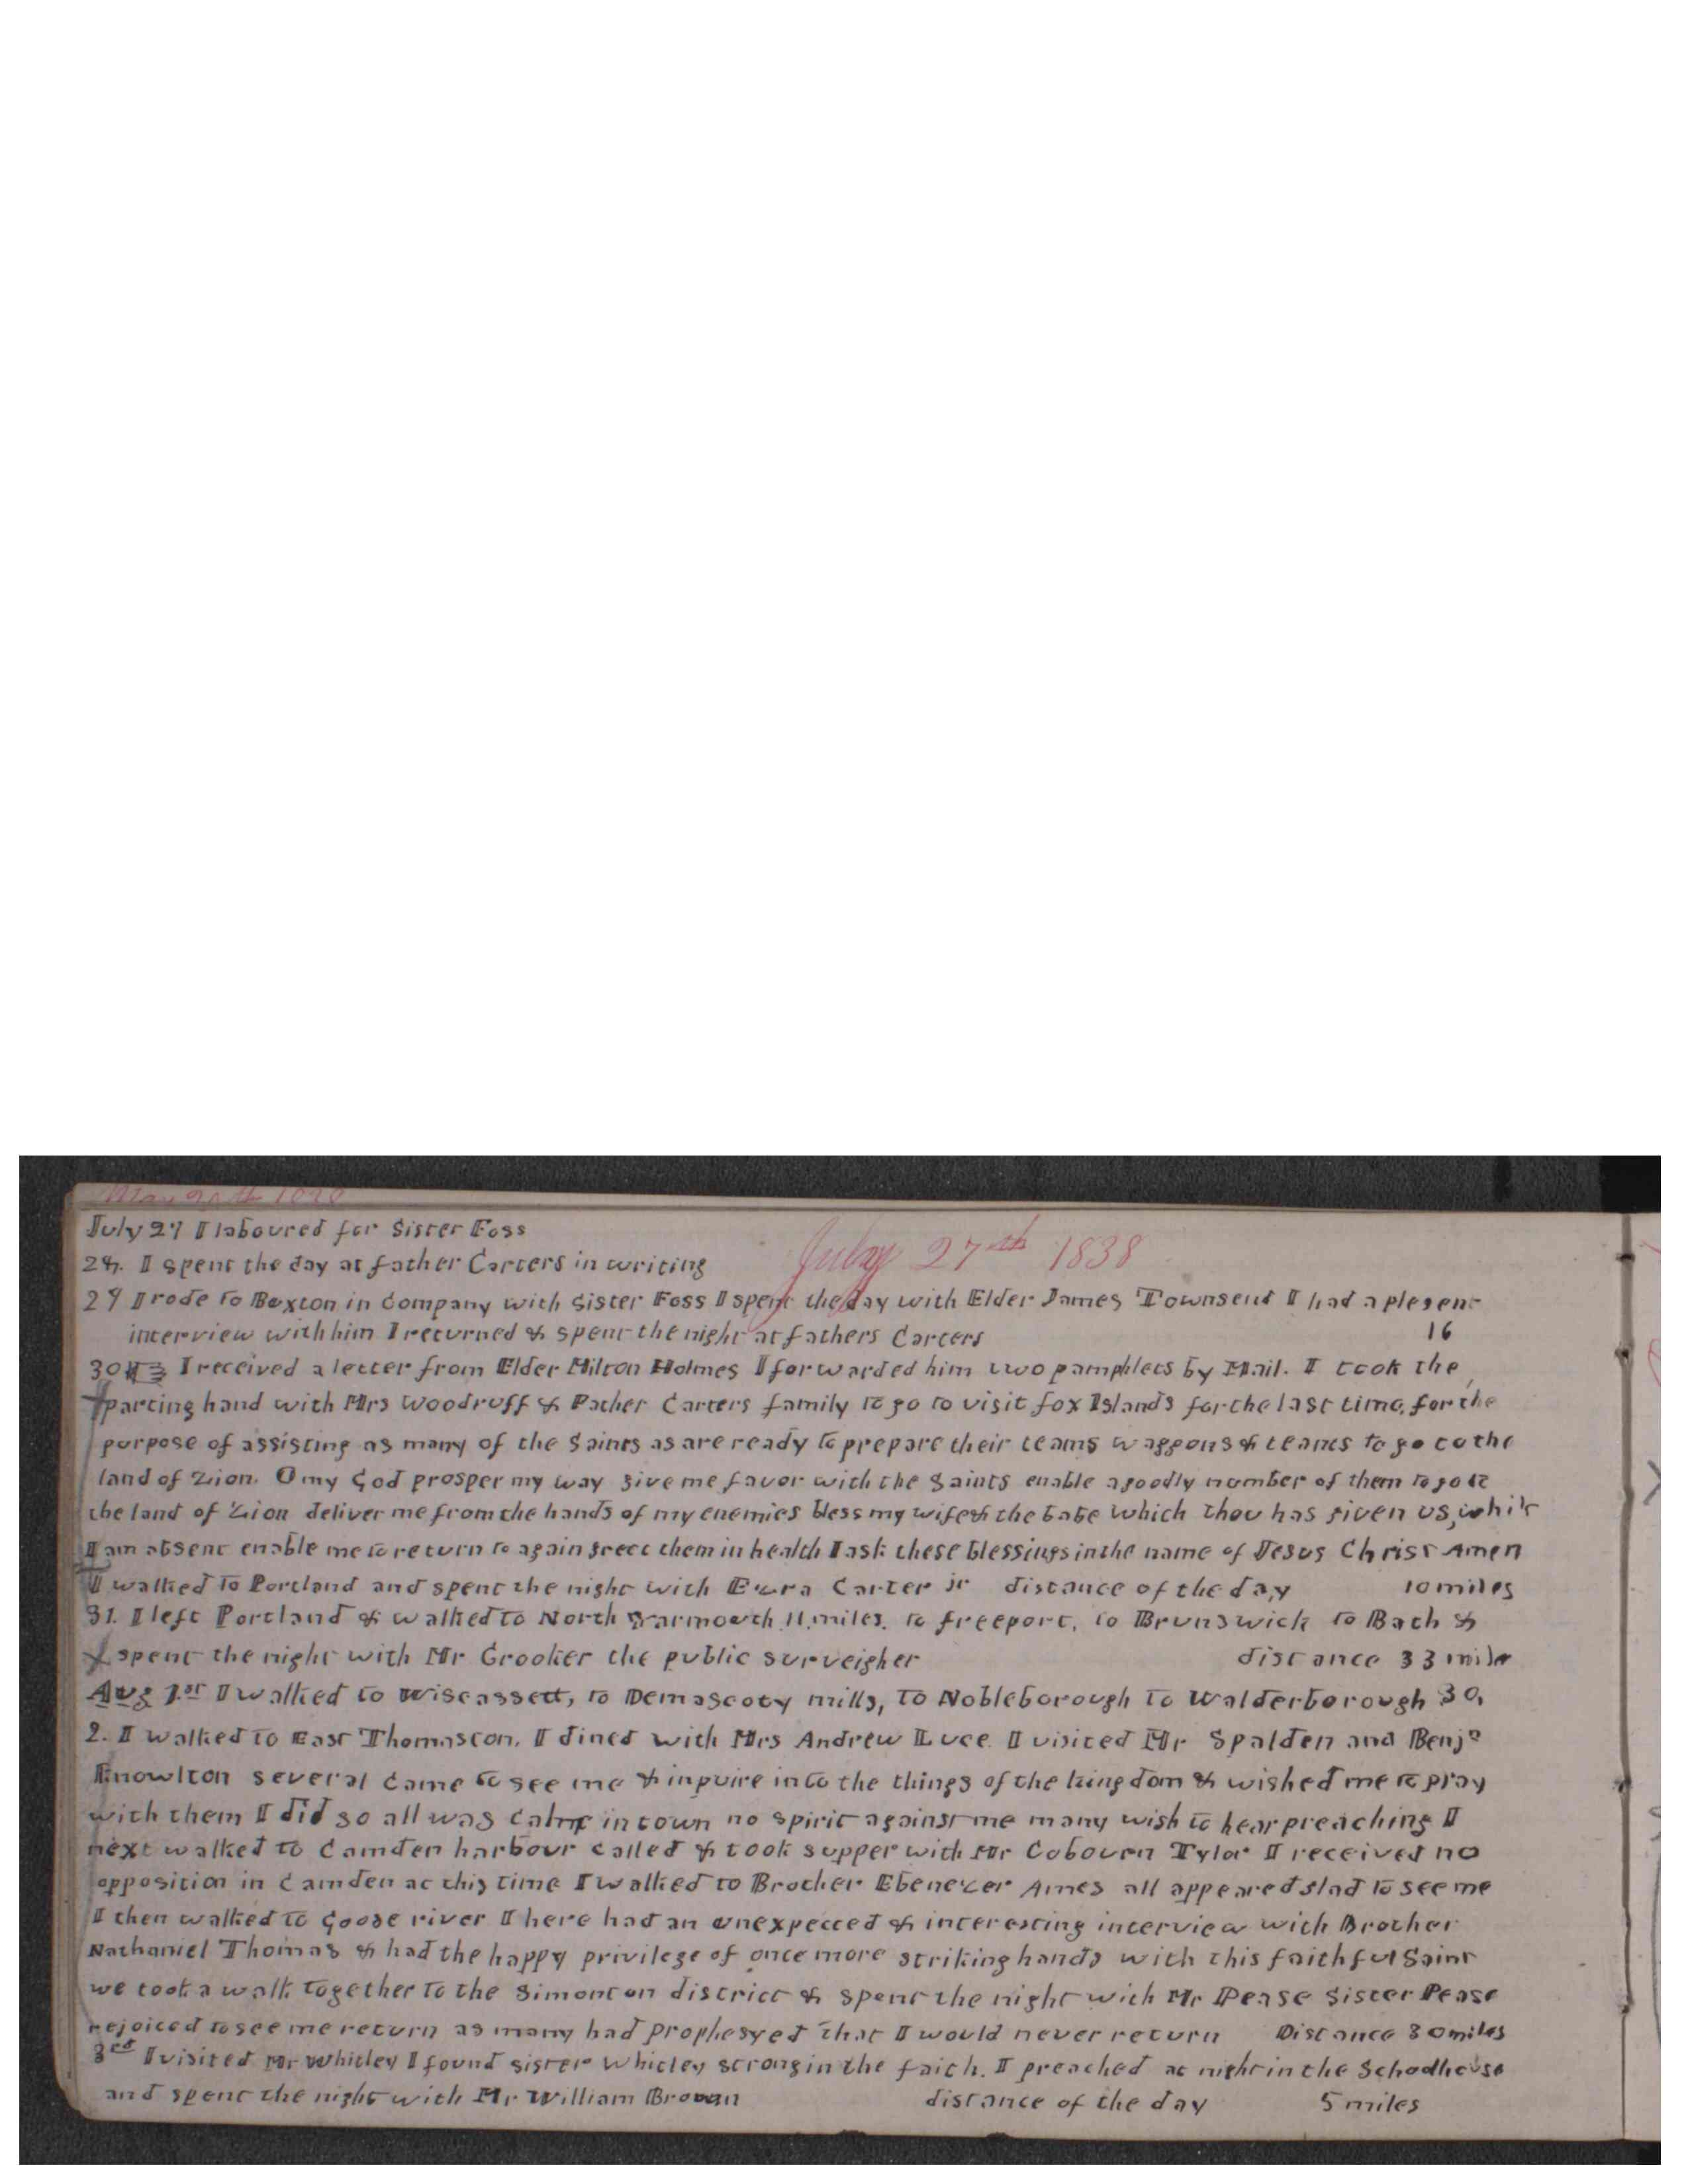 July 27 I laboured for Sister Foss
July 27th 1838
28. I spent the day at father Carters in writing
29 I rode to Buxton in Company with Sister Foss I spent the day with Elder James Townsend I had a plesent
interview with him I returned & spent the night at fathers Carters 16
30 I received a letter from Elder Milton Holmes I forwarded him two pamphlets by Mail. I took the
parting hand with Mrs Woodruff & Father Carters family to go to visit fox Islands for the last time, for the
purpose of assisting as many of the Saints as are ready to prepare their teams waggons & teants to go to the
land of Zion. O my God prosper my way give me favor with the Saints enable a goodly number of them to go to
the land of Zion deliver me from the hands of my enemies bless my wife & the babe which thou has given us, while
I am absent enable me to return to again greet them in health I ask these blessings in the name of Jesus Christ Amen
I walked to Portland and spent the night with Ezra Carter jr distance of the day 10 miles
31. I left Portland & walked to North Yarmouth 11. miles. to freeport, to Brunswick to Bath &
spent the night with Mr Grooker the public surveigher distance 33 mile
Aug 1st I walked to Wiscassett, to Demascoty mills, to Nobleborough to Walderborough 30,
2. I walked to East Thomaston. I dined with Mrs Andrew Luce. I visited Mr Spalden and Benja
Knowlton several came to see me & inquire into the things of the kingdom & wished me to pray
with them I did so all was calm in town no spirit against me many wish to hear preaching I
next walked to Camden harbour called & took supper with Mr Cobourn Tylor I received no
opposition in Camden at this time I walked to Brother Ebenezer Ames all appeared glad to see me
I then walked to Goose river I here had an unexpected & interesting interview with Brother
Nathaniel Thomas & had the happy privilege of once more striking hands with this faithful Saint
we took a walk together to the Simonton district & spent the night with Mr Pease Sister Pease
rejoiced to see me return as many had prophesyed that I would never return Distance 30 miles
3rd I visited Mr Whitley I found sister Whitley strong in the faith. I preached at night in the Schoolhouse
and spent the night with Mr William Brown distance of the day 5 miles